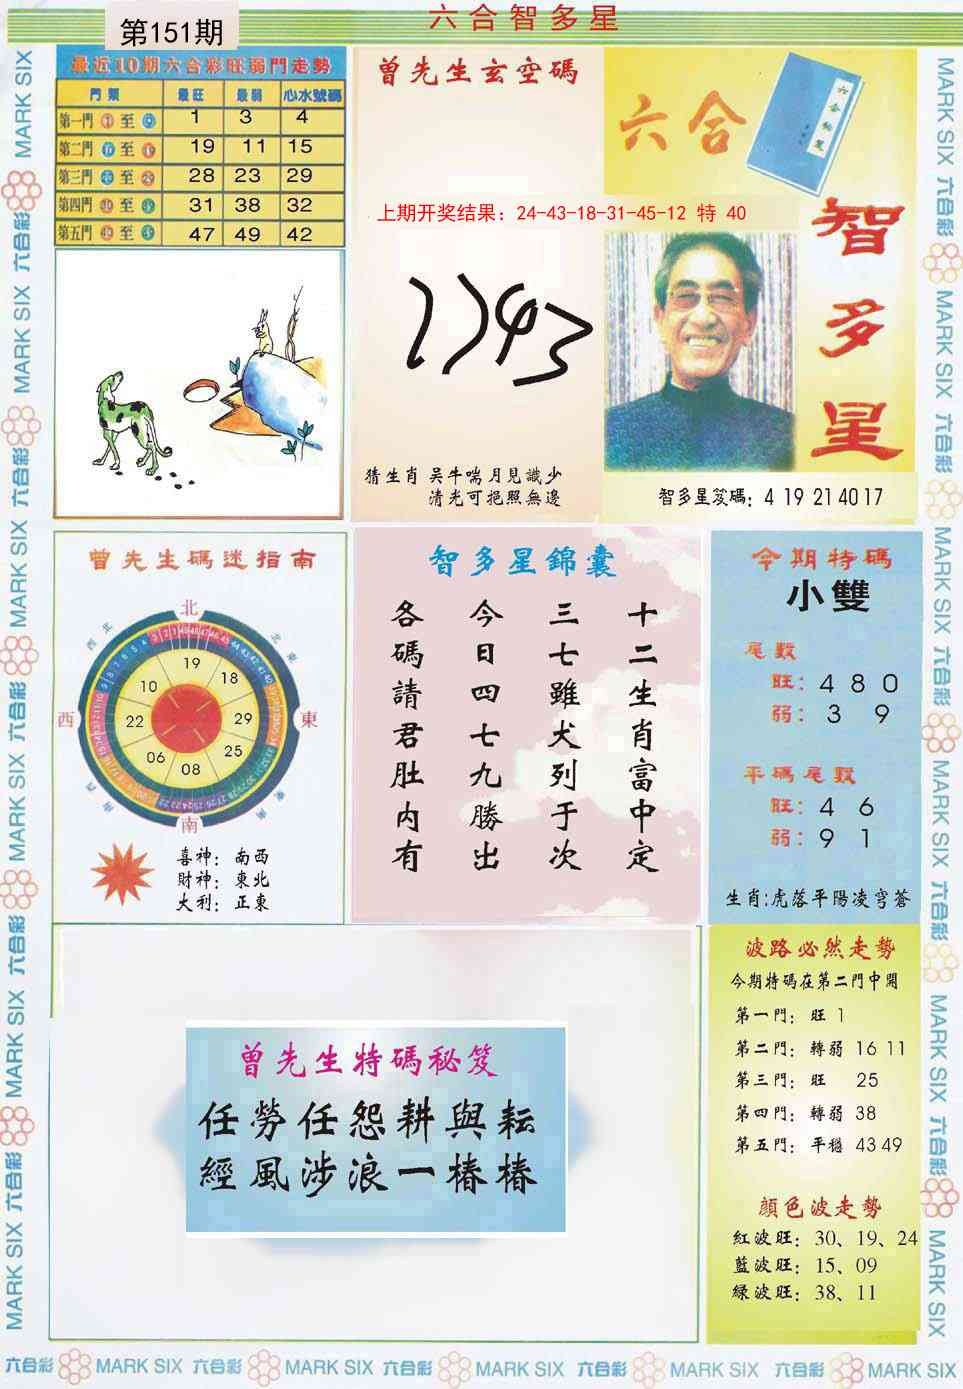 六合智多星
第151期
最近10期六合彩旺弱門走勢
門類 最旺 最弱 心水號碼
第一門 至 1 3 4
第二門 至 19 11 15
第三門 至 28 23 29
第四門 至 31 38 32
第五門 至 47 49 42
曾先生玄空碼
上期开奖结果: 24-43-18-31-45-12 特 40
猜生肖 吴牛喘月見識少
清光可挹照無邊
六合
智多星
智多星笈碼: 4 19 21 40 17
曾先生碼迷指南
北
東
南
西
東北
東南
西南
西北
19
18
29
25
08
06
22
10
喜神: 南西
財神: 東北
大利: 正東
智多星錦囊
十二生肖富中定
三七雖犬列于次
今日四七九勝出
各碼請君肚内有
今期特碼
小雙
尾數
旺: 4 8 0
弱: 3 9
平碼尾數
旺: 4 6
弱: 9 1
生肖:虎落平陽凌穹蒼
曾先生特碼秘笈
任勞任怨耕與耘
經風涉浪一樁樁
波路必然走勢
今期特碼在第二門中開
第一門: 旺 1
第二門: 轉弱 16 11
第三門: 旺 25
第四門: 轉弱 38
第五門: 平穩 43 49
顔色波走勢
紅波旺: 30、19、24
藍波旺: 15、09
緑波旺: 38、11
MARK SIX 六合彩 MARK SIX 六合彩 MARK SIX 六合彩 MARK SIX 六合彩 MARK SIX 六合彩 MARK SIX
MARK SIX 六合彩 MARK SIX 六合彩 MARK SIX 六合彩 MARK SIX 六合彩 MARK SIX 六合彩 MARK SIX
六合彩 MARK SIX 六合彩 MARK SIX 六合彩 MARK SIX 六合彩 MARK SIX